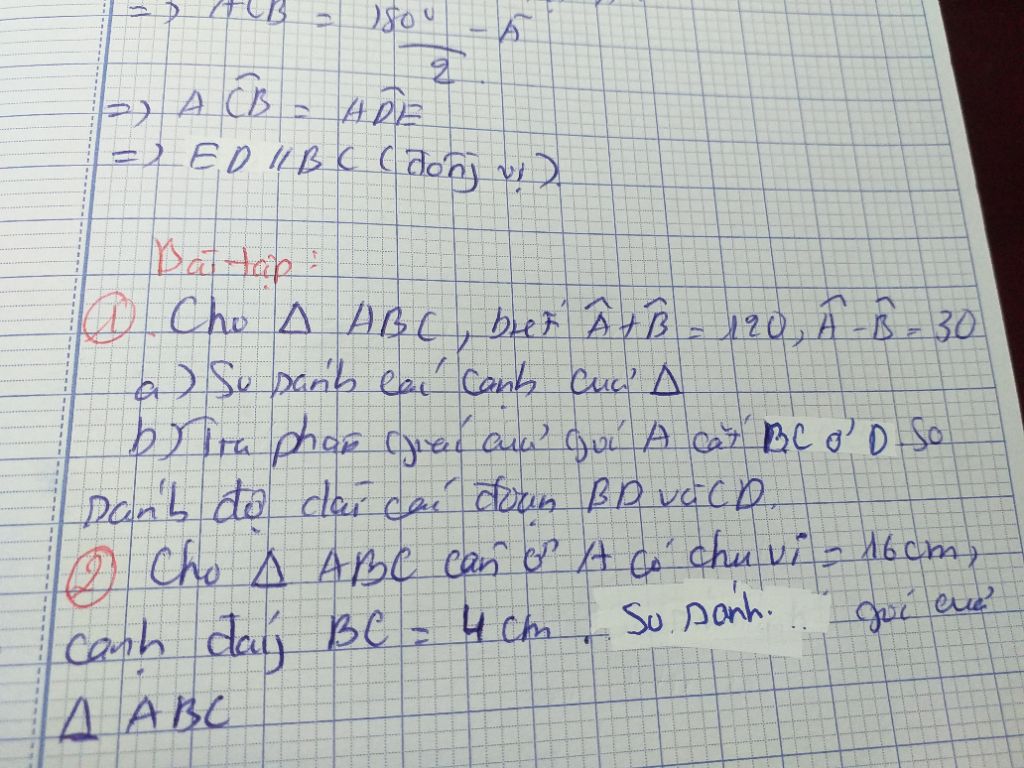 => ACB = 180⁰ - Â
2
=> A ĈB = A D̂E
=> ED // BC (đồng vị)
Bài tập:
① Cho Δ ABC, biết Â + B̂ = 120, Â - B̂ = 30
a) So sánh các cạnh của Δ
b) Tia phân giác của góc A cắt BC ở D. So
sánh độ dài các đoạn BD và CD.
② Cho Δ ABC cân ở A có chu vi = 16cm,
cạnh đáy BC = 4 cm. So sánh góc của
Δ ABC